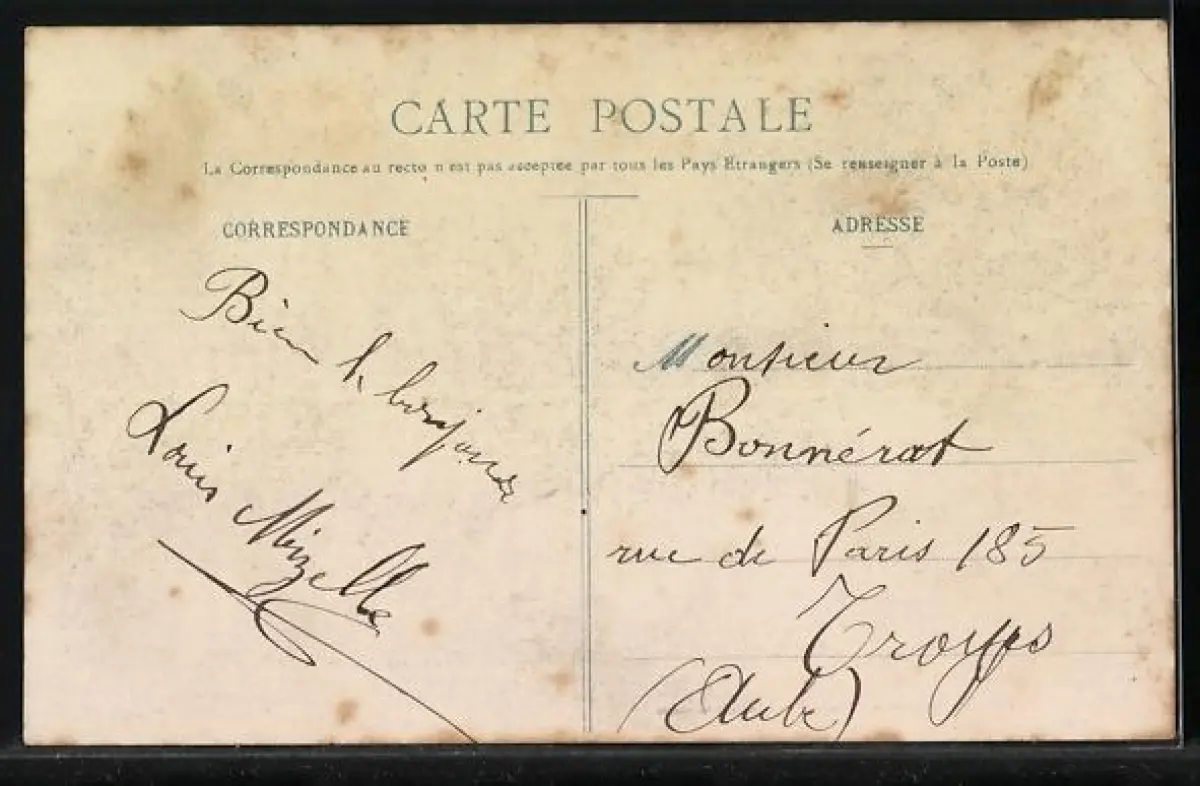 CARTE POSTALE
La Correspondance au recto n'est pas acceptée par tous les Pays Etrangers (Se renseigner à la Poste)
CORRESPONDANCE
Bien le bonjour
Louis
ADRESSE
Monsieur
Bonnérat
rue de Paris 185
Troyes
(Aube)